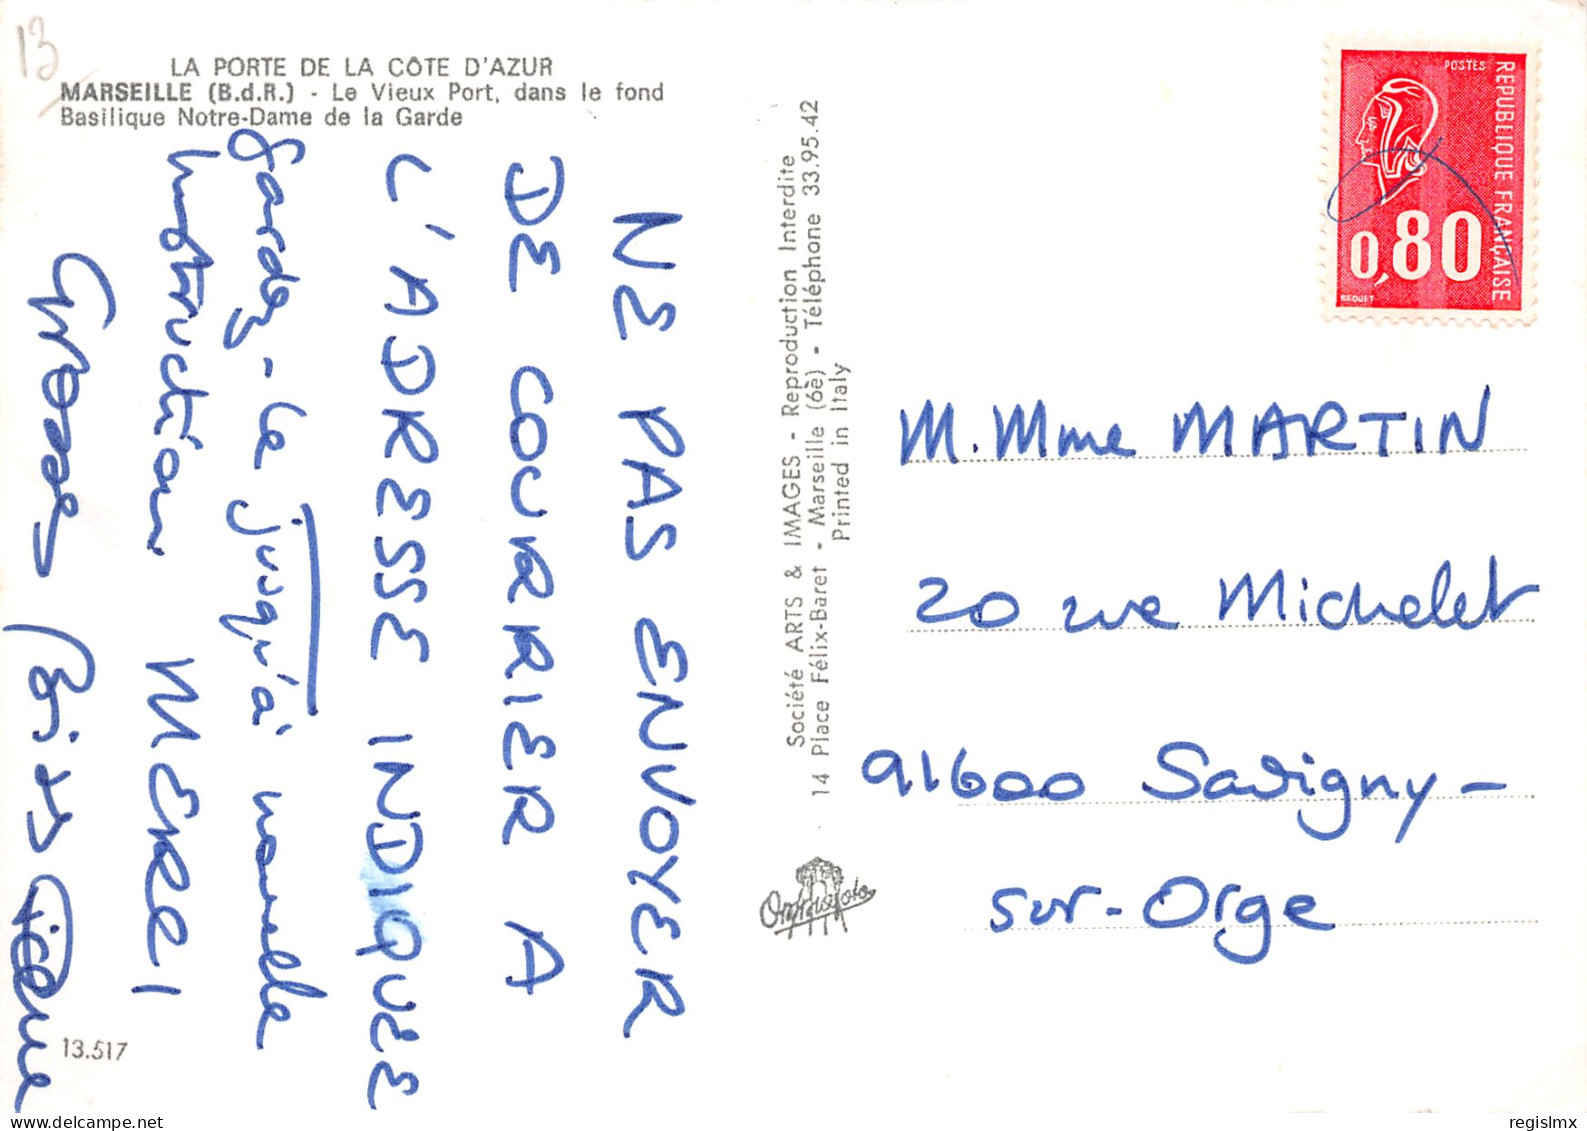 13
LA PORTE DE LA CÔTE D'AZUR
MARSEILLE (B.d.R.) - Le Vieux Port, dans le fond
Basilique Notre-Dame de la Garde
NE PAS ENVOYER
DE COURRIER A
L'ADRESSE INDIQUÉE
Gardez-le jusqu'à nouvelle
instruction MERCI
Grosses Bises Pierre
13.517
Société ARTS & IMAGES - Reproduction Interdite
14 Place Félix-Baret - Marseille (6è) - Téléphone 33.95.42
Printed in Italy
POSTES
REPUBLIQUE FRANÇAISE
0,80
BEQUET
M. Mme MARTIN
20 rue Michelet
91600 Savigny-
sur-Orge
regislmx